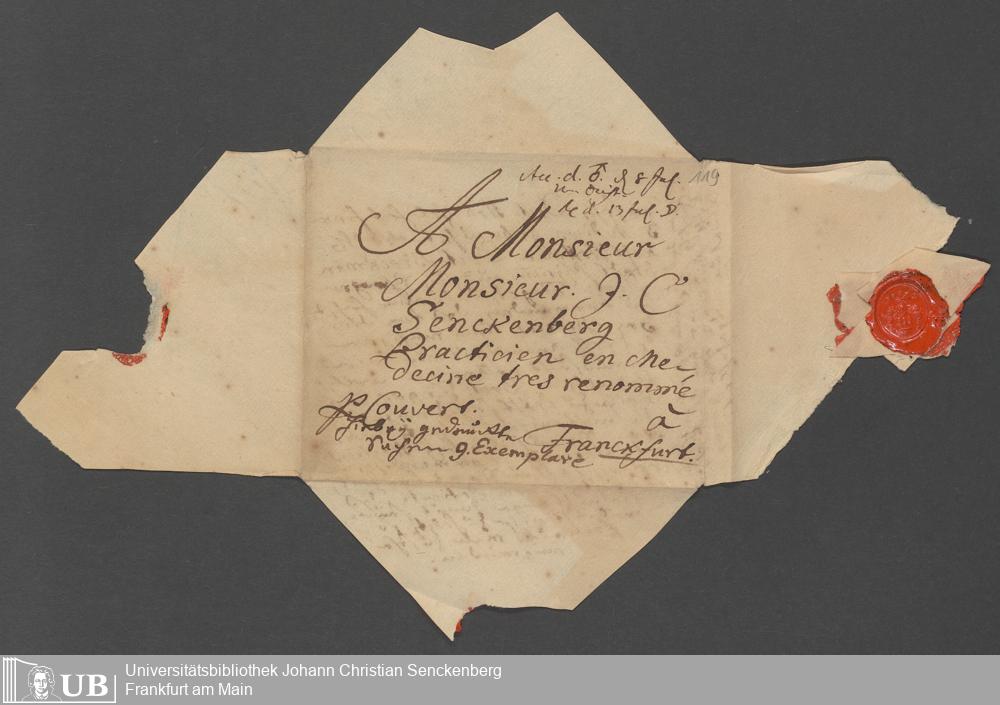 Acc. d. 8 Jul.
d. 13 Jul.
119
A Monsieur
Monsieur. J. C
Senckenberg
Practicien en Me-
decine tres renommé
à
Franckfurt.
Couvert.
hiebey gedruckte
Sachen 9. Exemplare
UB
Universitätsbibliothek Johann Christian Senckenberg
Frankfurt am Main